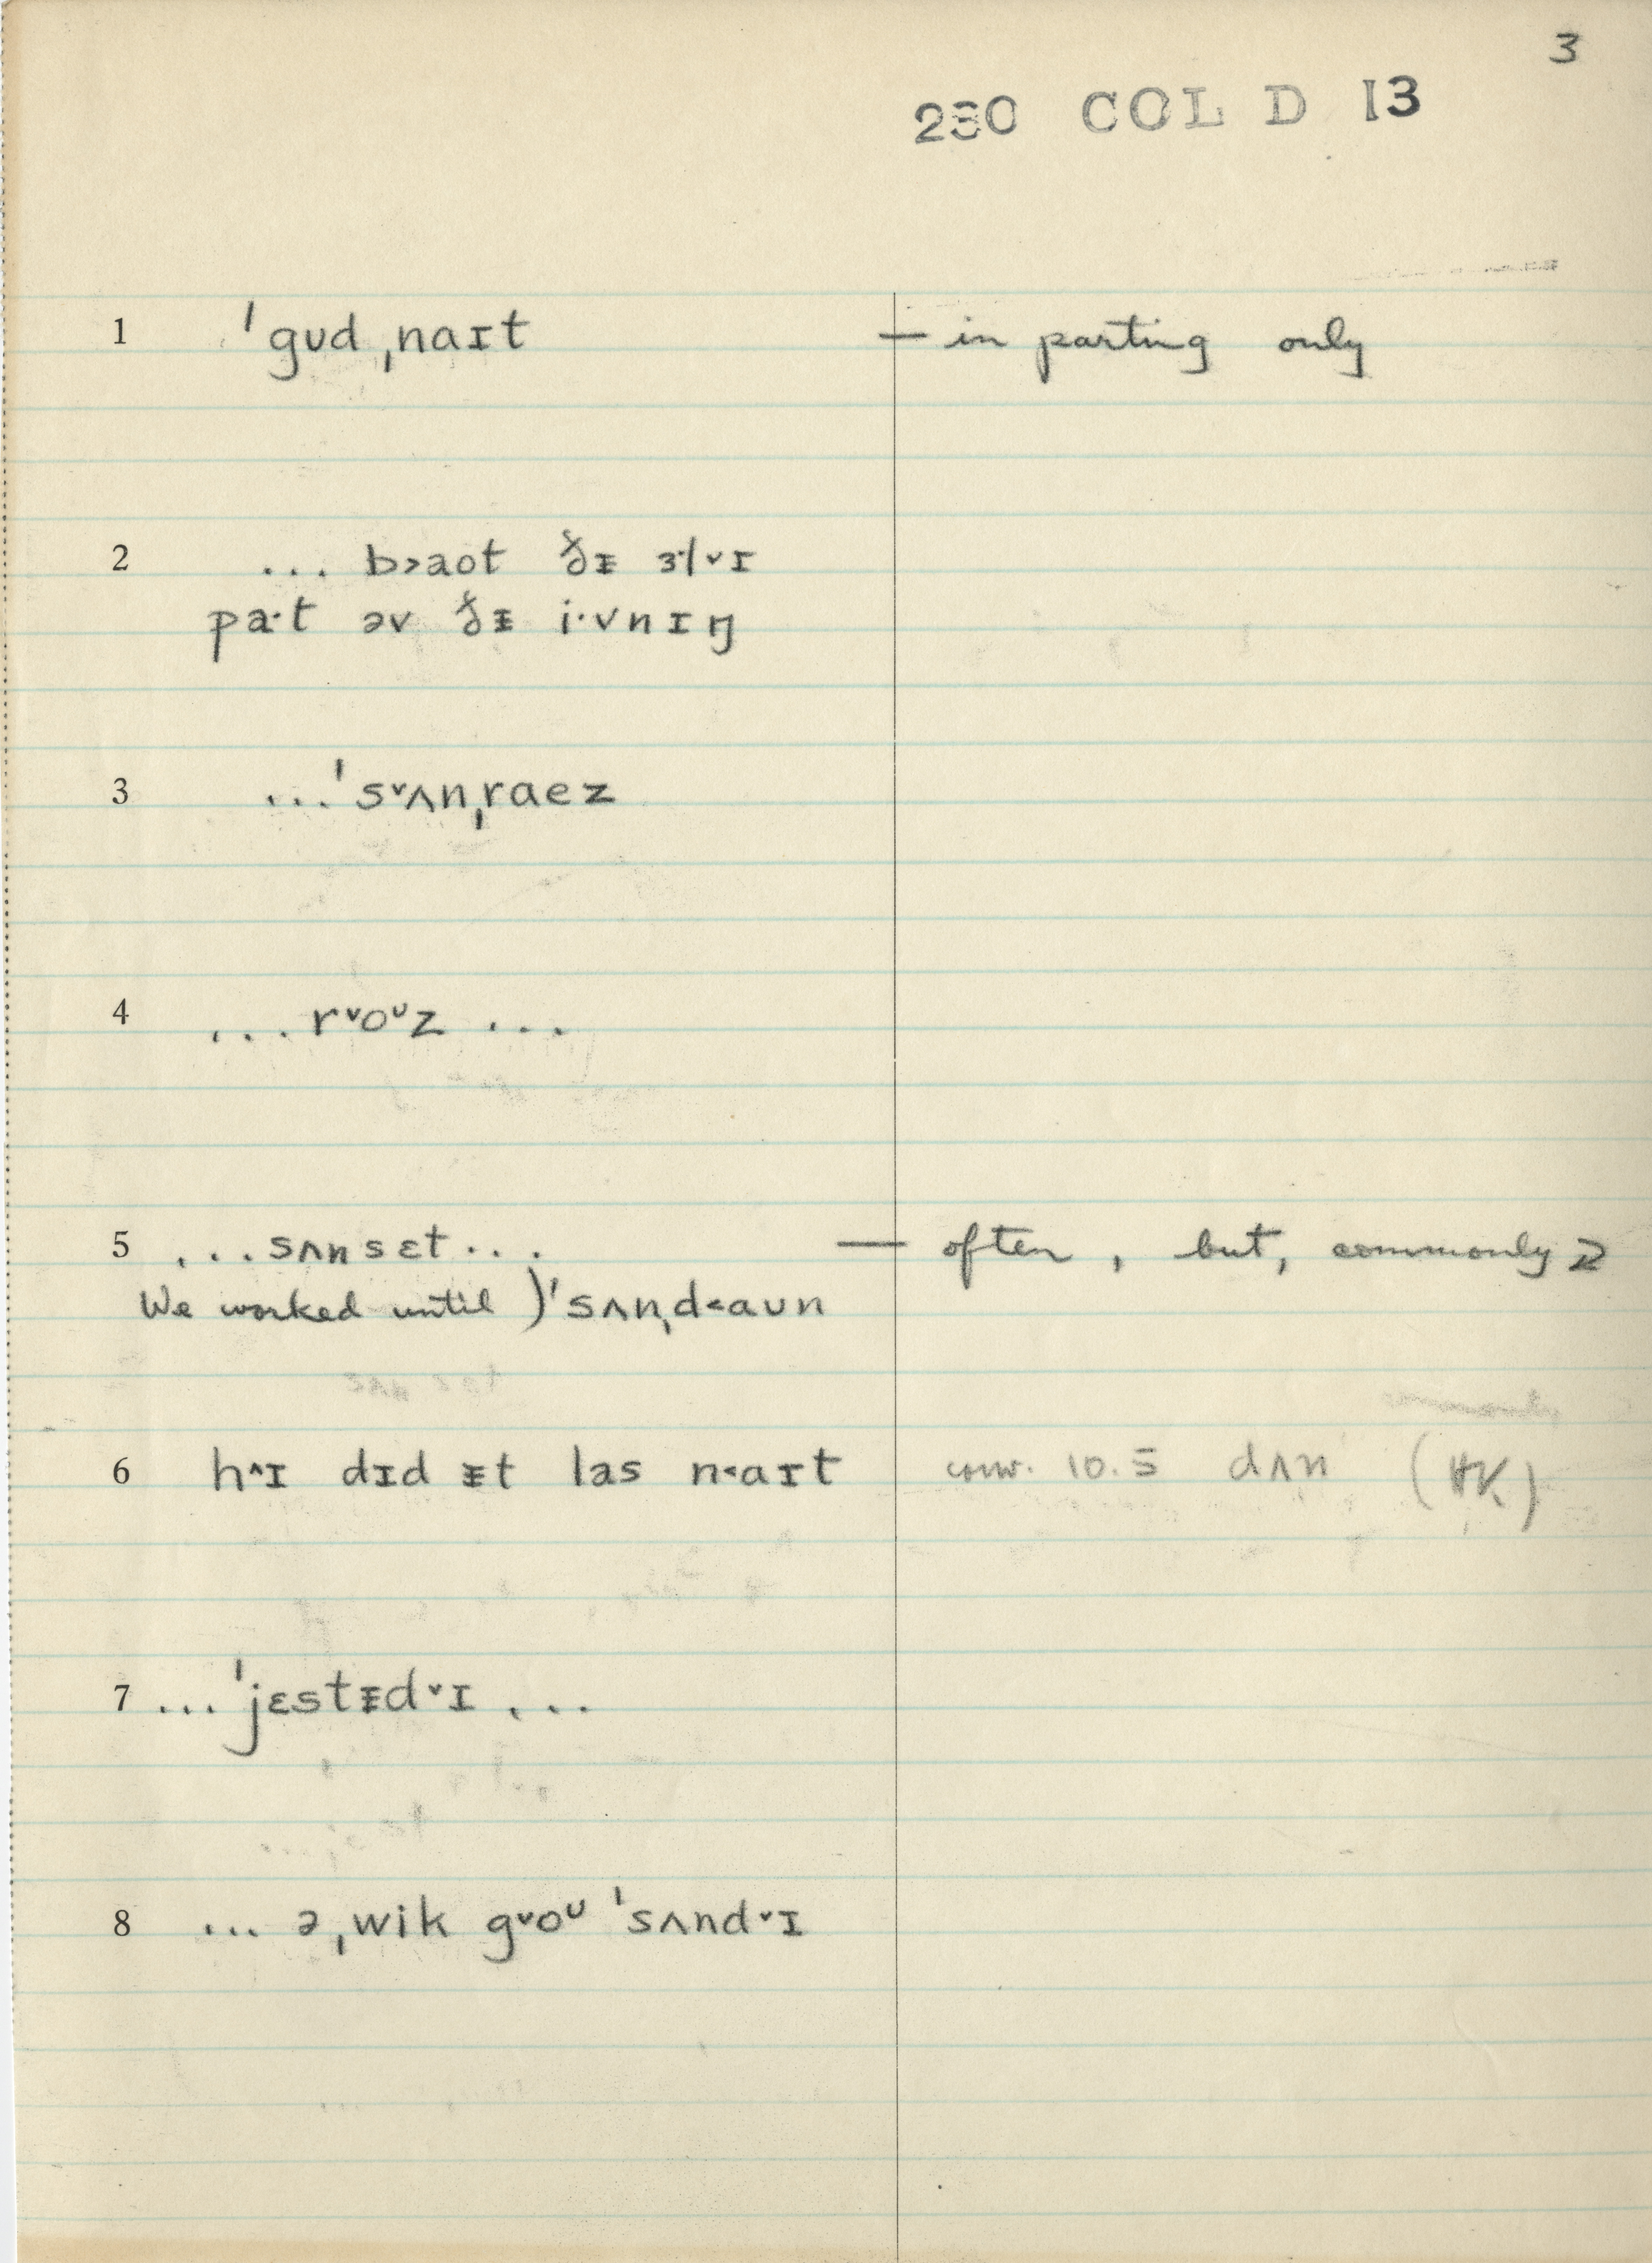 3
230 COL D 13
1 ˈgʊd ˌnaɪt — in parting only
2 ... b˃aot ðᵻ ɜ·l˅ɪ
pa·t əv ðᵻ i·vnɪŋ
3 ...ˈs˅ʌnˌraez
4 ...r˅oᶷz ...
5 ...sʌnsɛt... — often, but, commonly
We worked until )ˈsʌnˌd˂aʊn
6 h^ɪ dɪd ᵻt las n˂aɪt conv. 10.5 dʌn (HK)
7 ...ˈjɛstᵻd˅ɪ ...
8 ... əˌwik g˅oᶷ ˈsʌnd˅ɪ